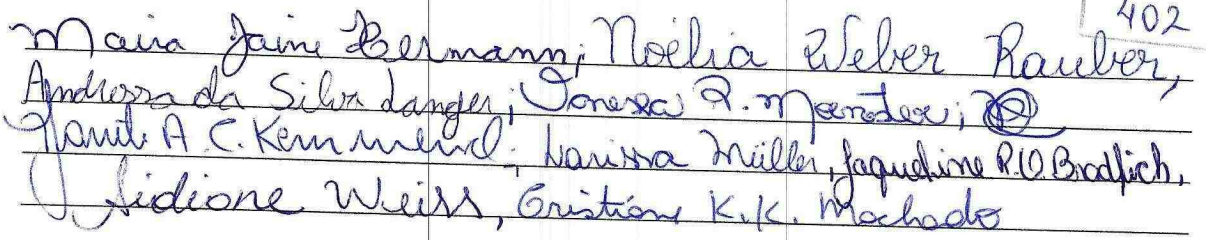 402
Maira Jaine Hermann; Noélia Weber Rauber,
Andressa da Silva Langer; Vanessa R.
A. C. Larissa Müller, Jaqueline R.O.
Sidione Weiss, Cristiane K.K. Machado